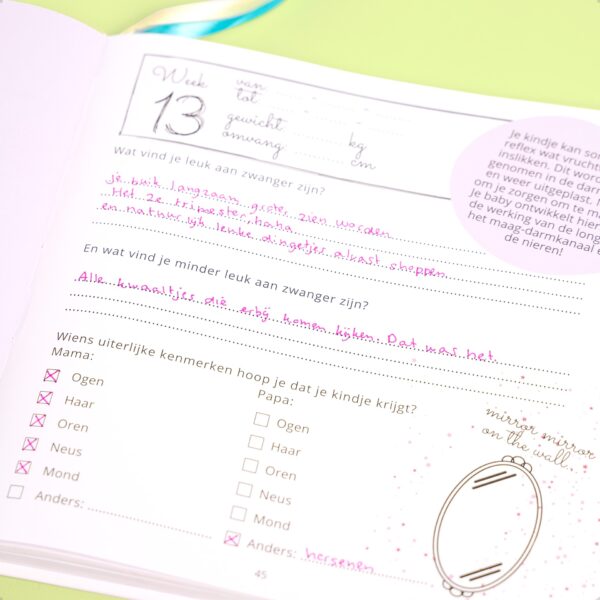 Week
13
van - -
tot - -
gewicht kg
omvang cm
Je kindje kan
reflex wat
inslikken. Dit
genomen in de
en weer uitgeplast.
om je zorgen om te
Je baby ontwikkelt
de werking van de
het maag-darmkanaal
de nieren!
Wat vind je leuk aan zwanger zijn?
je buik langzaam groter zien worden
Het 2e trimester, haha
en natuurlijk leuke dingetjes alvast shoppen
En wat vind je minder leuk aan zwanger zijn?
Alle kwaaltjes die erbij komen kijken. Dat was het
Wiens uiterlijke kenmerken hoop je dat je kindje krijgt?
Mama:
Ogen
Haar
Oren
Neus
Mond
Anders:
Papa:
Ogen
Haar
Oren
Neus
Mond
Anders: hersenen
mirror mirror
on the wall...
45